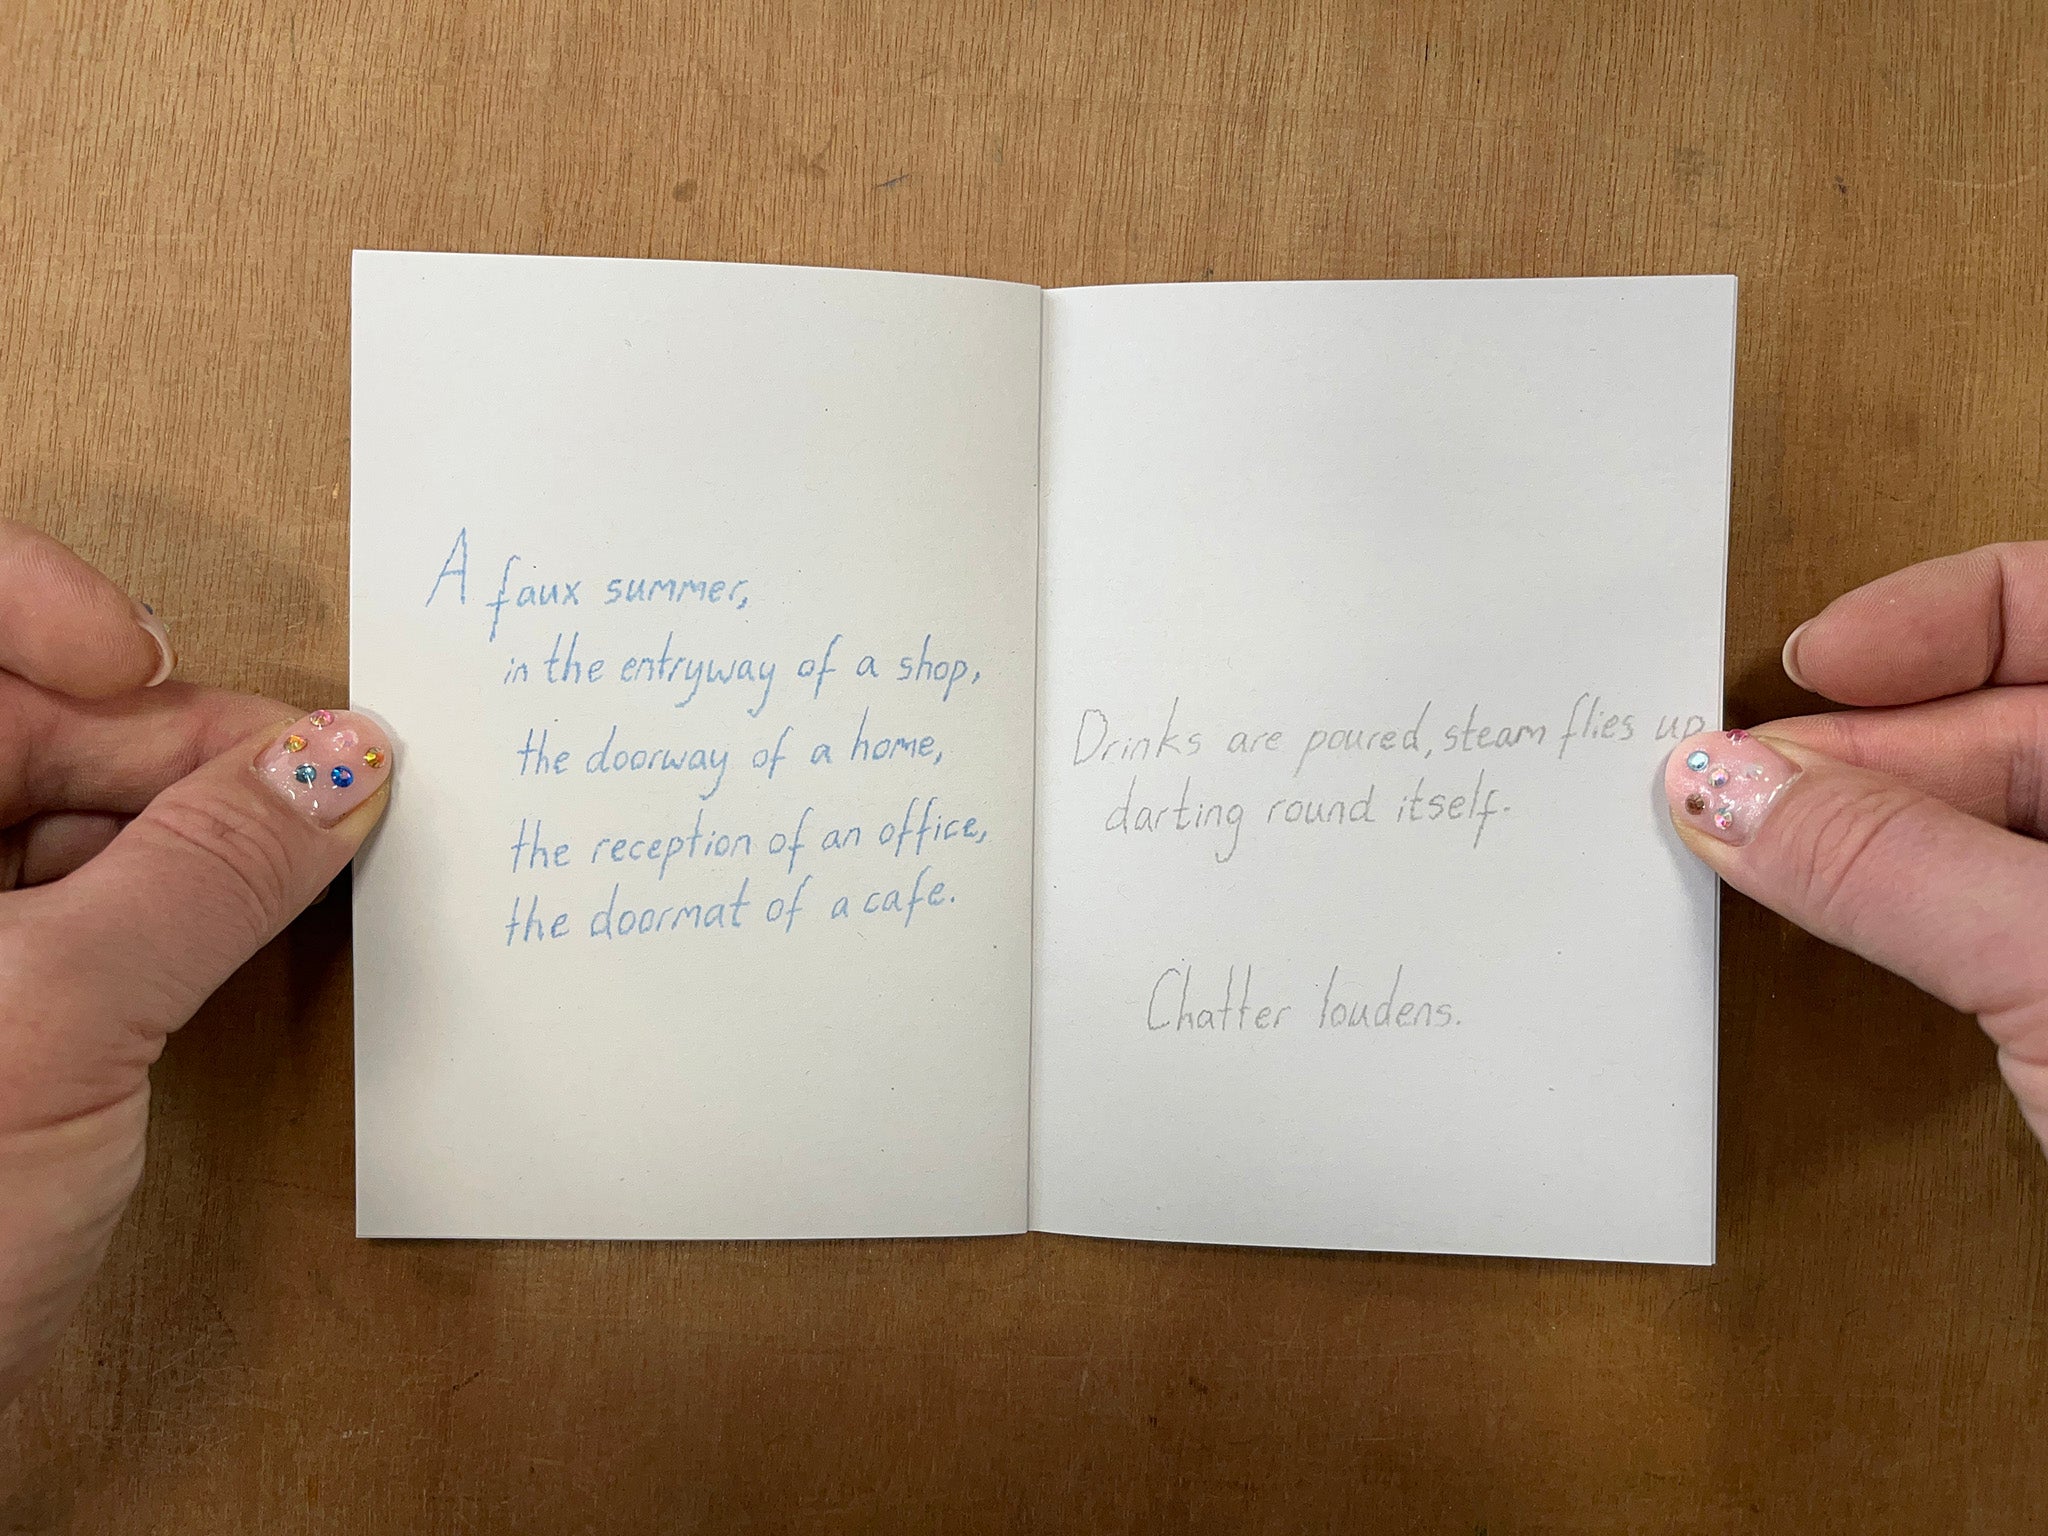 A faux summer,
in the entryway of a shop,
the doorway of a home,
the reception of an office,
the doormat of a cafe.
Drinks are poured, steam flies up
darting round itself.
Chatter loudens.